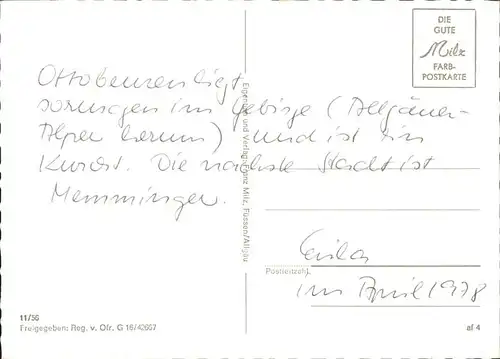 Ottobeuren liegt
sozusagen im Gebirge (Allgäuer-
Alpen herum) und ist ein
Kurort. Die nächste Stadt ist
Memmingen.
im April 1978
DIE
GUTE
Milz
FARB-
POSTKARTE
Eigentum und Verlag Franz Milz, Füssen/Allgäu
Postleitzahl
11/56
Freigegeben: Reg. v. Ofr. G 16/42607
af 4